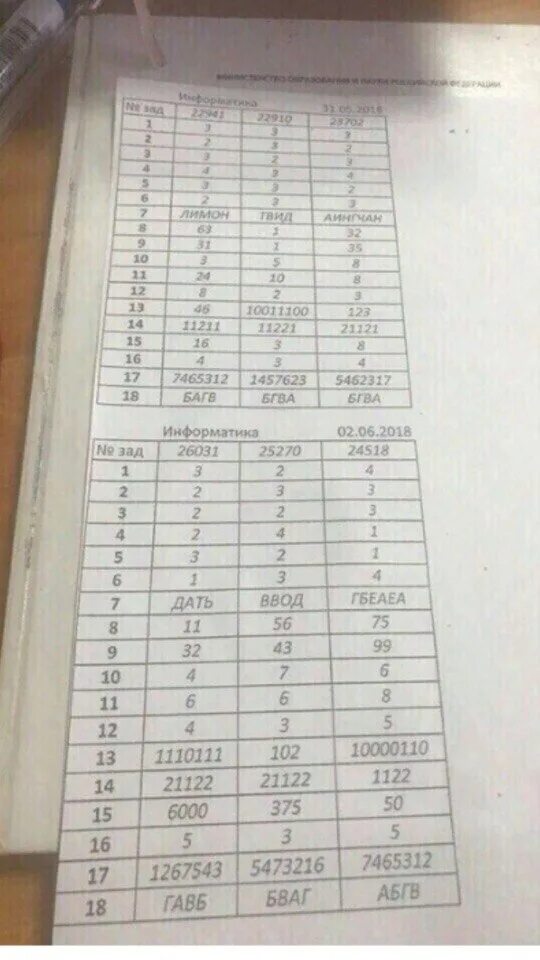 МИНИСТЕРСТВО ОБРАЗОВАНИЯ И НАУКИ РОССИЙСКОЙ ФЕДЕРАЦИИ
Информатика 31.05.2018
№ зад 22941 22910 23702
1 3 3 3
2 2 3 2
3 3 2 3
4 4 3 4
5 3 3 2
6 2 3 3
7 ЛИМОН ТВИД АИНГЧАН
8 63 1 32
9 31 1 35
10 3 5 8
11 24 10 8
12 8 2 3
13 46 10011100 123
14 11211 11221 21121
15 16 3 8
16 4 3 4
17 7465312 1457623 5462317
18 БАГВ БГВА БГВА
Информатика 02.06.2018
№ зад 26031 25270 24518
1 3 2 4
2 2 3 3
3 2 2 3
4 2 4 1
5 3 2 1
6 1 3 4
7 ДАТЬ ВВОД ГБЕАЕА
8 11 56 75
9 32 43 99
10 4 7 6
11 6 6 8
12 4 3 5
13 1110111 102 10000110
14 21122 21122 1122
15 6000 375 50
16 5 3 5
17 1267543 5473216 7465312
18 ГАВБ БВАГ АБГВ